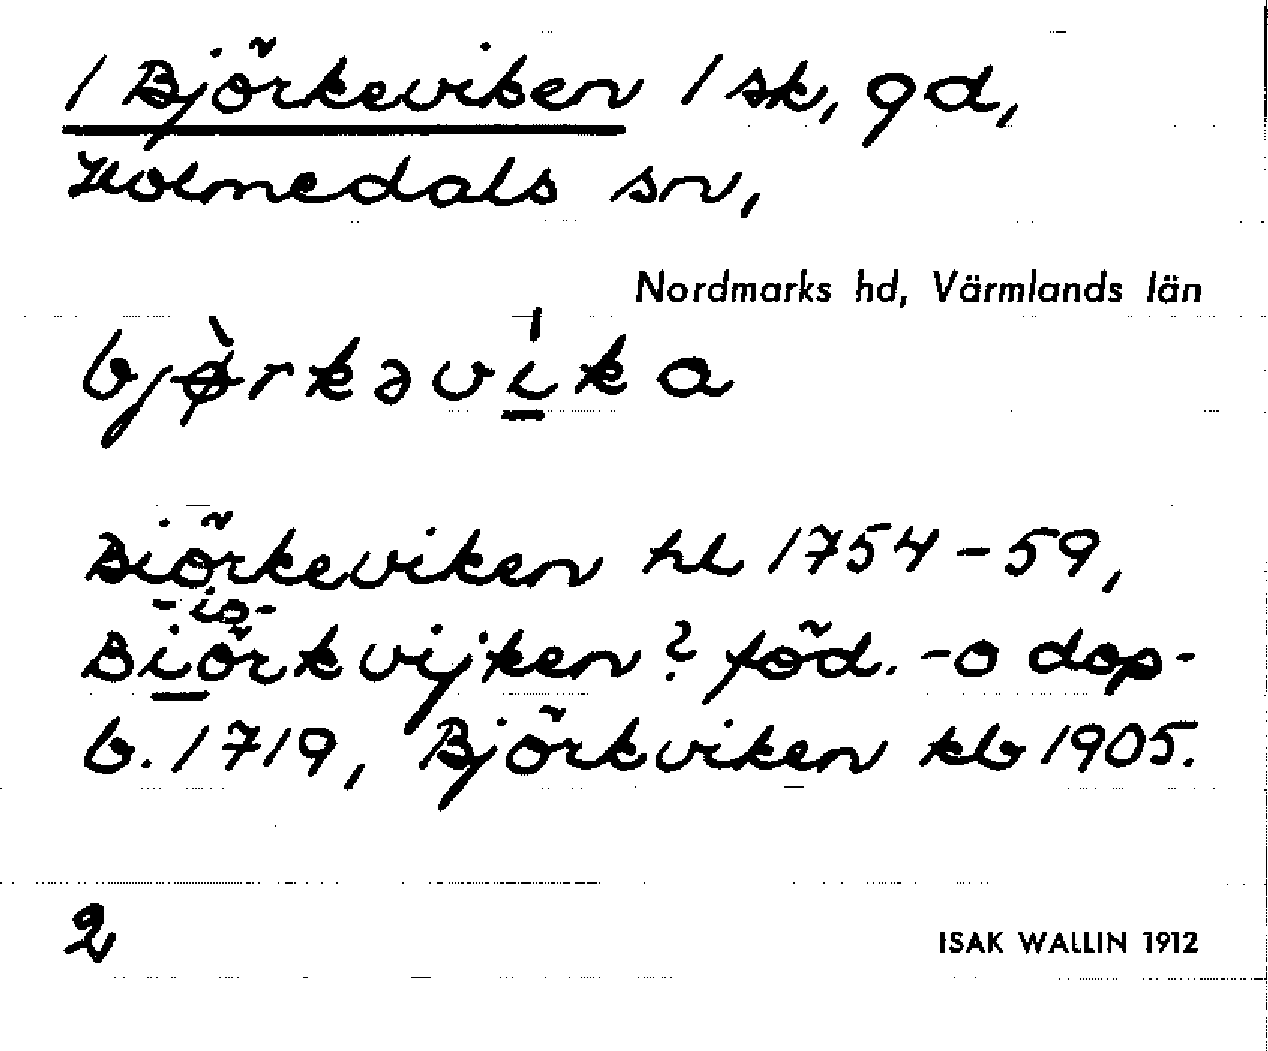 / Björkeviken / sk, gd,
Holmedals sn,
Nordmarks hd, Värmlands län
bjø̀rkəví̱ka
Biörkeviken hl 1754-59,
-io-
Biörkvijken? föd.-o dop-
b. 1719, Björkviken kb 1905.
2
ISAK WALLIN 1912